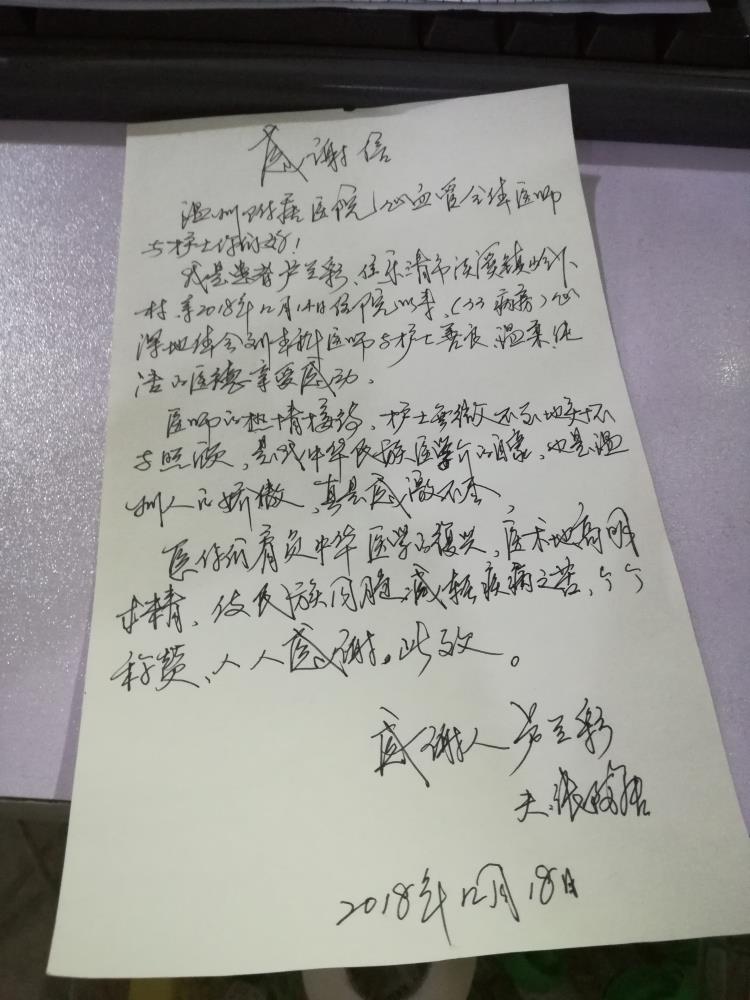 感谢信
温州附属医院心血管全体医师
与护士你们好！
我是患者芦兰彩，住乐清市淡溪镇
村，于2018年12月14日住院以来，（33病房）
深地体会到本科医师与护士善良、温柔、纯
洁的医德，享受感动。
医师的热情接待，护士无微不至地关怀
与照顾，是我中华民族医学介的自豪，也是温
州人的娇傲，真是感激不尽，
医你们肩负中华医学的复兴，医术地高明
求精，使民族同胞减轻疾病之苦，个个
称赞、人人感谢。此致。
感谢人 芦兰彩
夫：张
2018年12月18日